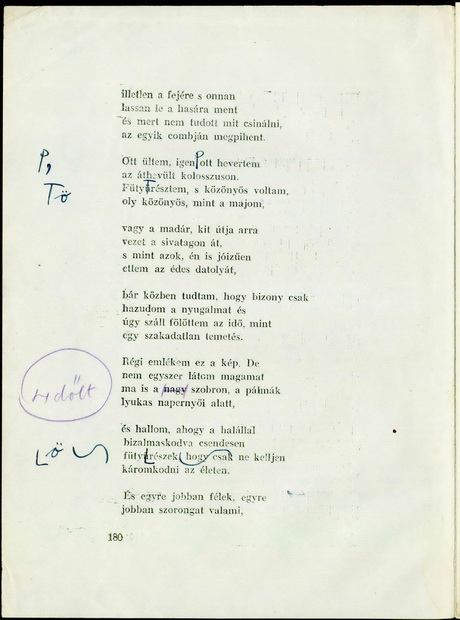 illetlen a fejére s onnan
lassan le a hasára ment
és mert nem tudott mit csinálni,
az egyik combján megpihent.
P,
Ott ültem, igen ott hevertem
az áthevült kolosszuson.
Tö
Fütyürésztem, s közönyös voltam,
oly közönyös, mint a majom,
vagy a madár, kit útja arra
vezet a sivatagon át,
s mint azok, én is jóízűen
ettem az édes datolyát,
bár közben tudtam, hogy bizony csak
hazudom a nyugalmat és
úgy száll fölöttem az idő, mint
egy szakadatlan temetés.
Régi emlékem ez a kép. De
nem egyszer látom magamat
dőlt
ma is a nagy szobron, a pálmák
lyukas napernyői alatt,
és hallom, ahogy a halállal
bizalmaskodva csendesen
Lö
fütyürészek, hogy csak ne kelljen
káromkodni az életen.
És egyre jobban félek, egyre
jobban szorongat valami,
180